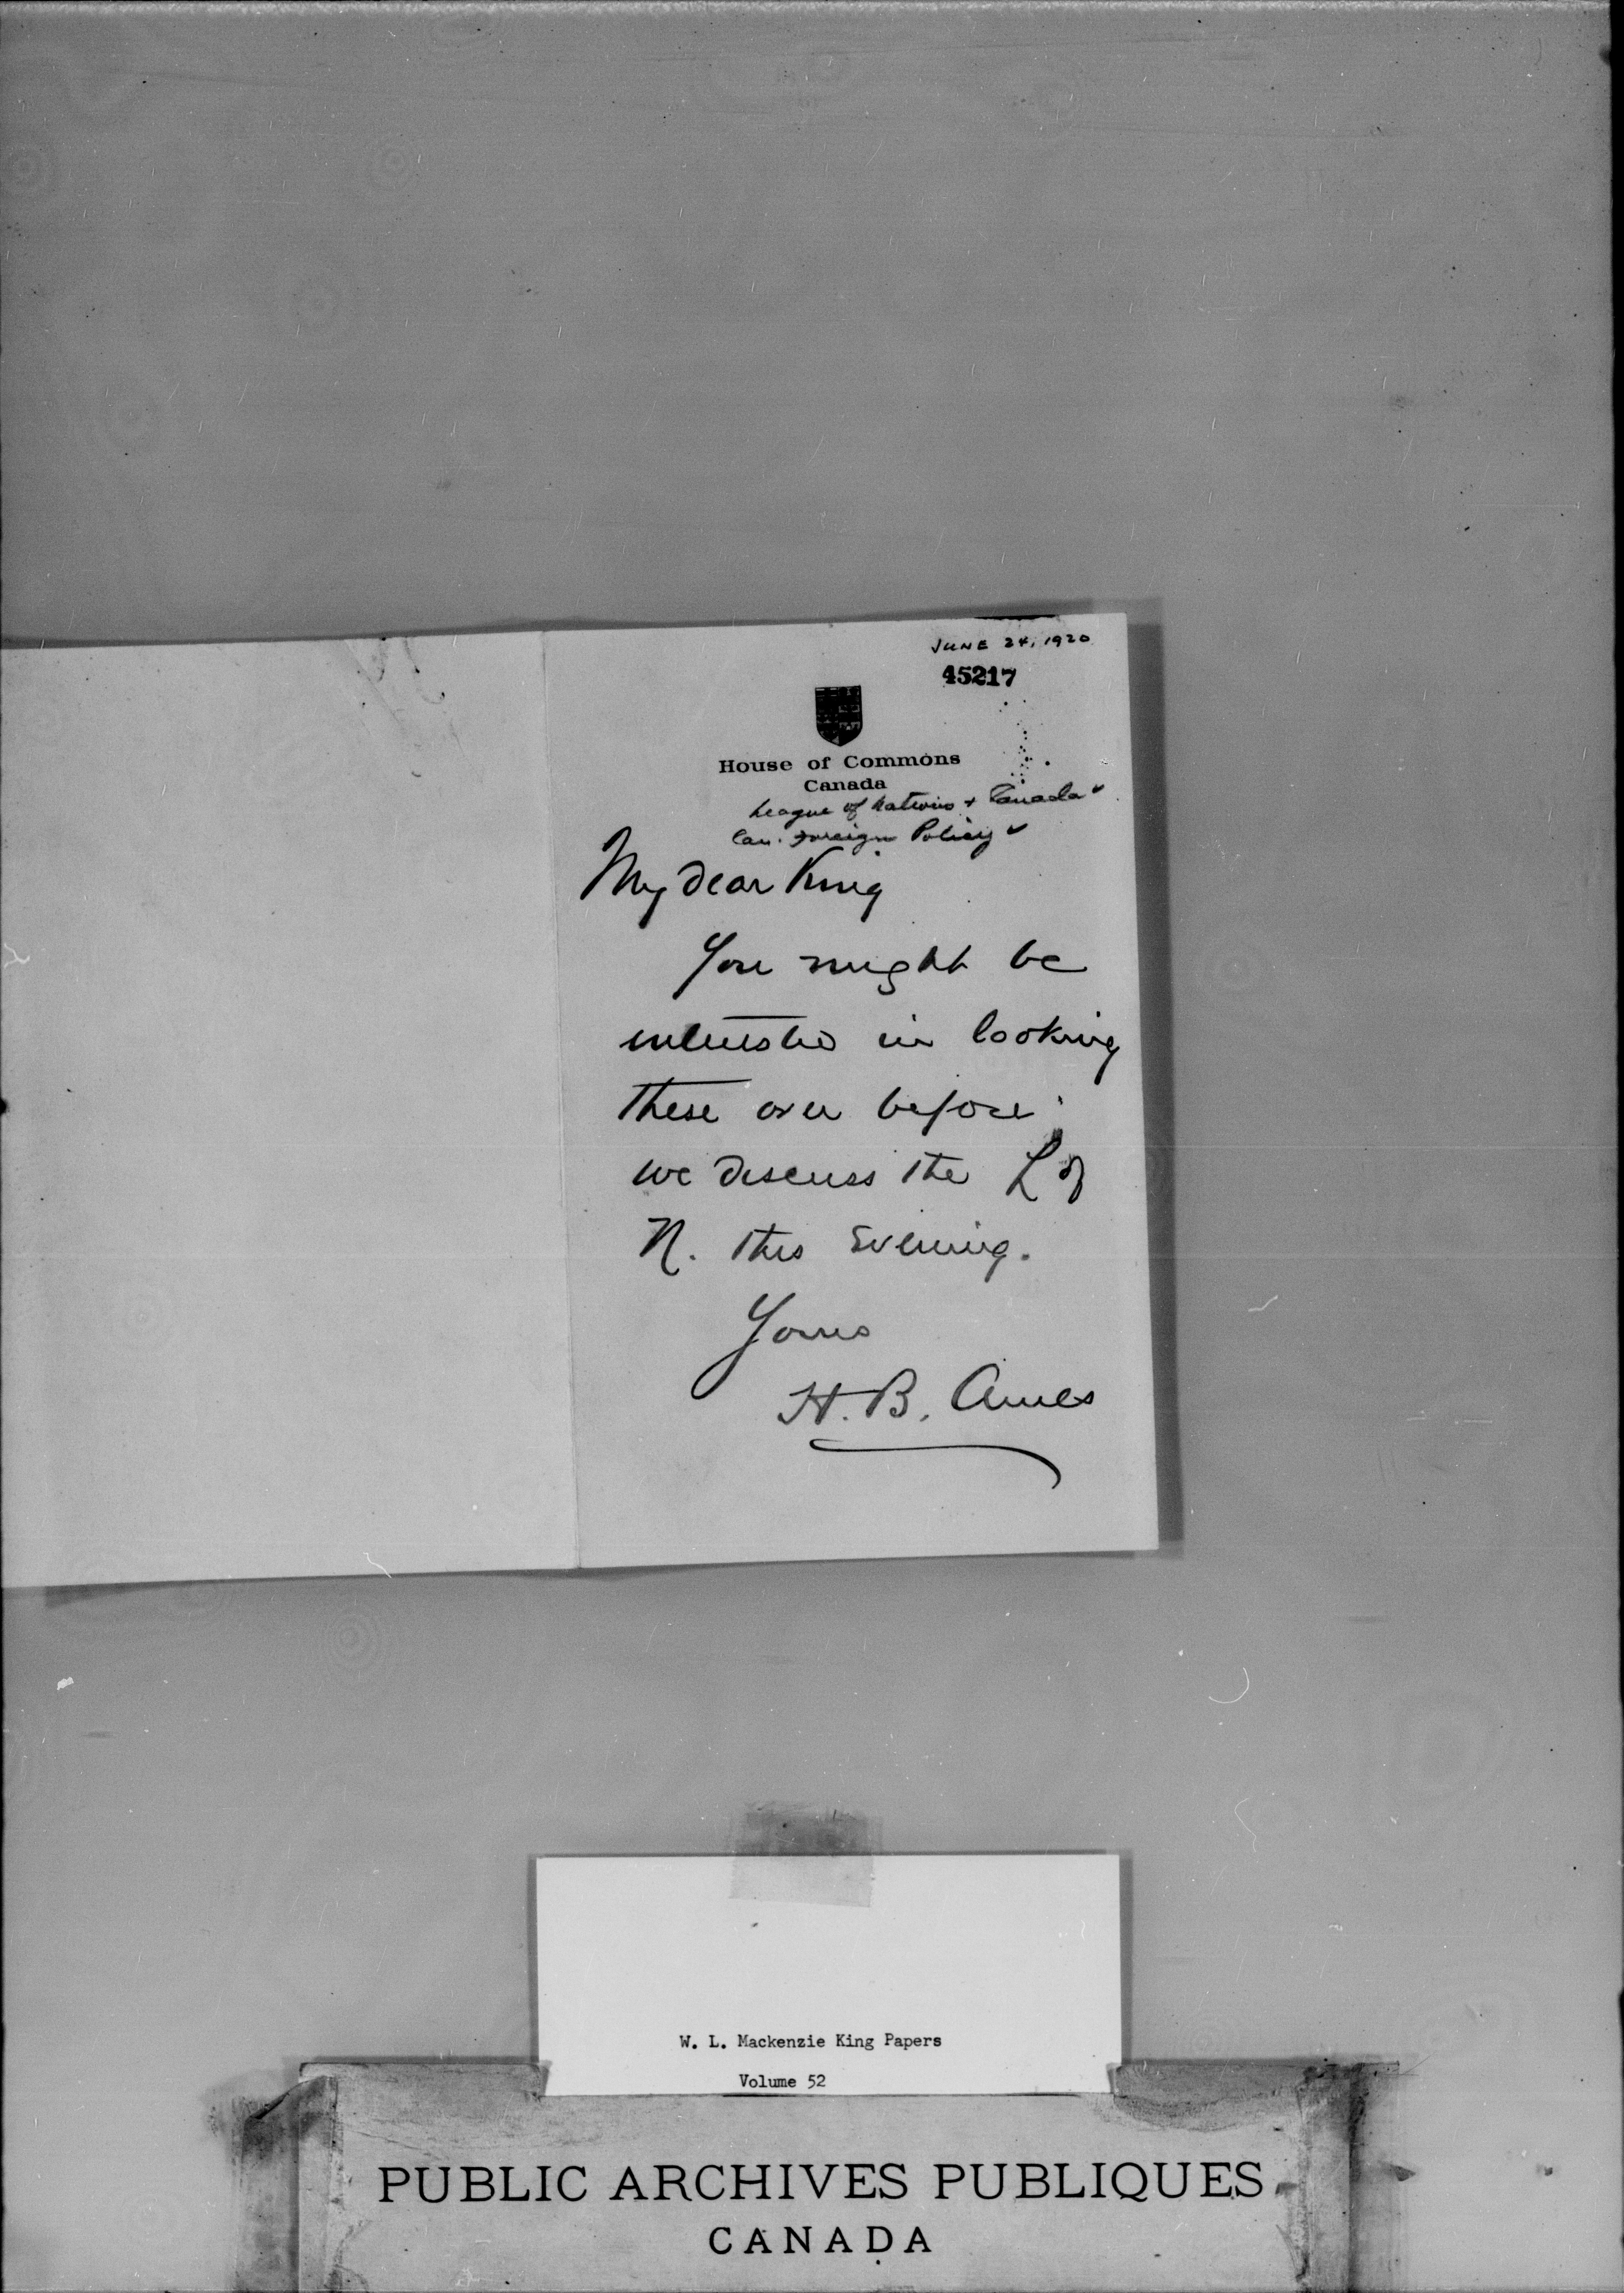 JUNE 24, 1920
45217
House of Commons
Canada
League of Nations + Canada ✓
Can. Foreign Policy ✓
My dear King
You might be
interested in looking
these over before
we discuss the L of
N. this Evening.
Yours
H. B. Ames
W. L. Mackenzie King Papers
Volume 52
PUBLIC ARCHIVES PUBLIQUES
CANADA